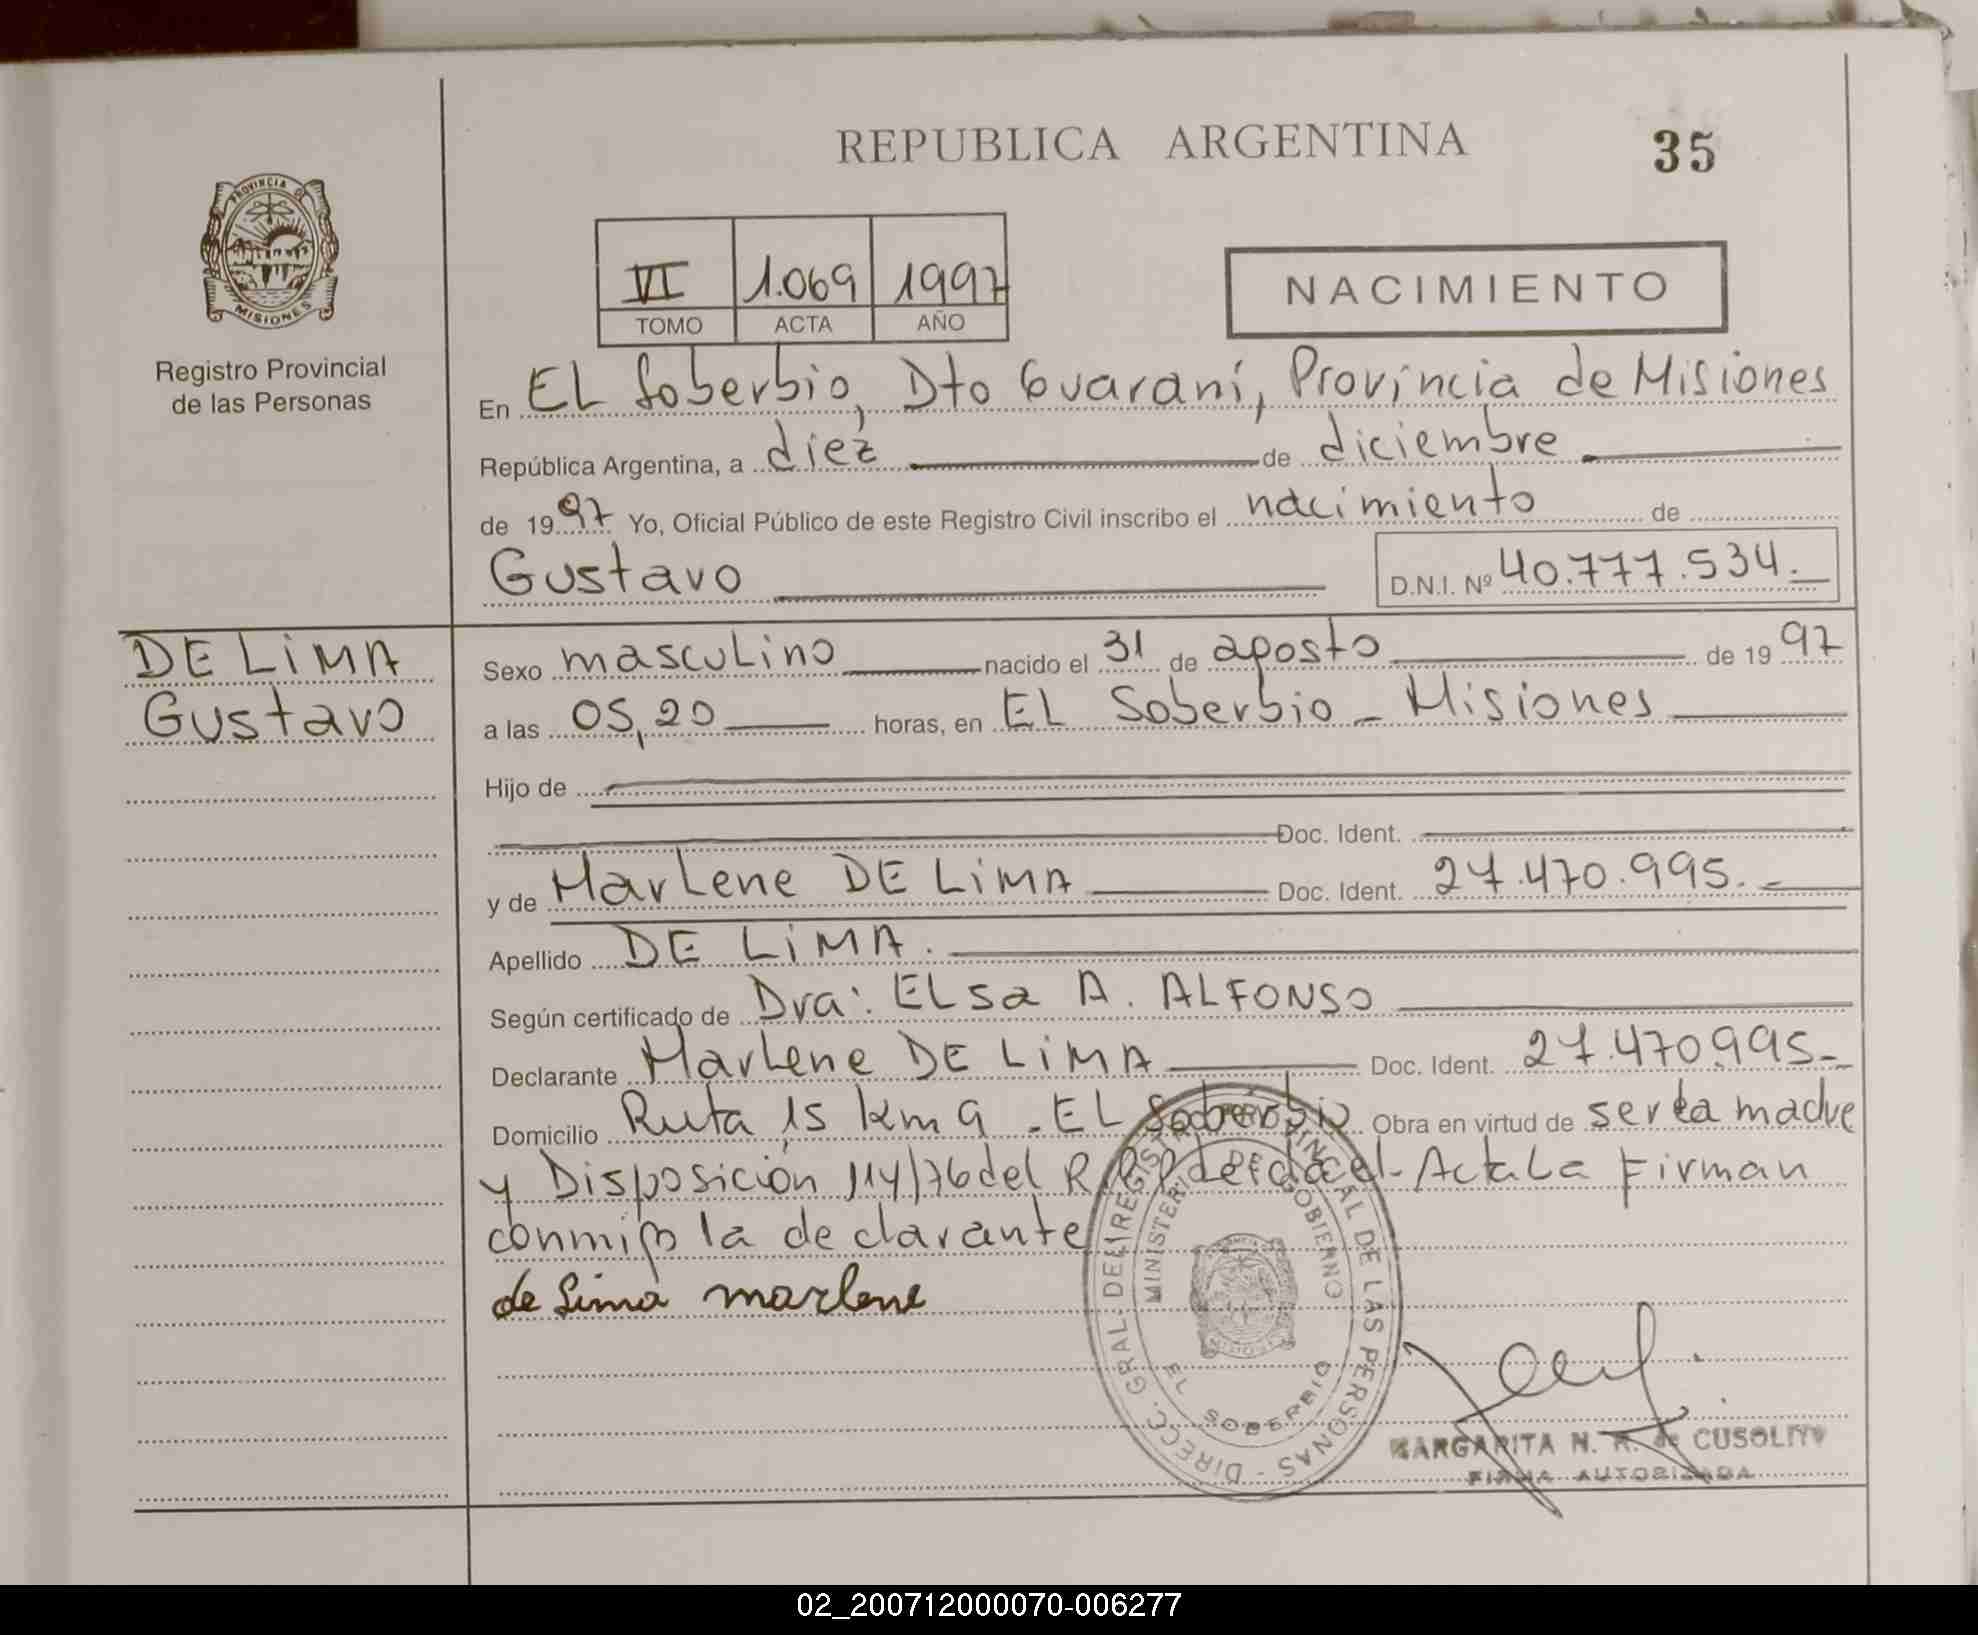 REPUBLICA ARGENTINA
35
PROVINCIA DE
MISIONES
Registro Provincial
de las Personas
VI 1.069 1997
TOMO ACTA AÑO
NACIMIENTO
En EL Soberbio, Dto Guaraní, Provincia de Misiones
República Argentina, a diez de diciembre
de 1997 Yo, Oficial Público de este Registro Civil inscribo el nacimiento de
Gustavo D.N.I. Nº 40.777.534.
DE LIMA
Gustavo
Sexo masculino nacido el 31 de agosto de 1997
a las 05,20 horas, en EL Soberbio - Misiones
Hijo de
Doc. Ident.
y de Marlene DE LIMA Doc. Ident. 27.470.995.-
Apellido DE LIMA.
Según certificado de Dra: ELsa A. ALFONSO
Declarante Marlene DE LIMA Doc. Ident. 27.470995-
Domicilio Ruta 15 km 9 - EL Soberbio Obra en virtud de ser la madre
y Disposición 114/76 del R. Leída el Acta La Firman
conmigo la declarante
de Lima marlene
DIRECC. GRAL. DEL REGISTRO PROVINCIAL DE LAS PERSONAS -
MINISTERIO DE GOBIERNO
EL SOBERBIO
MARGARITA N. R. de CUSOLITO
FIRMA AUTORIZADA
02_200712000070-006277